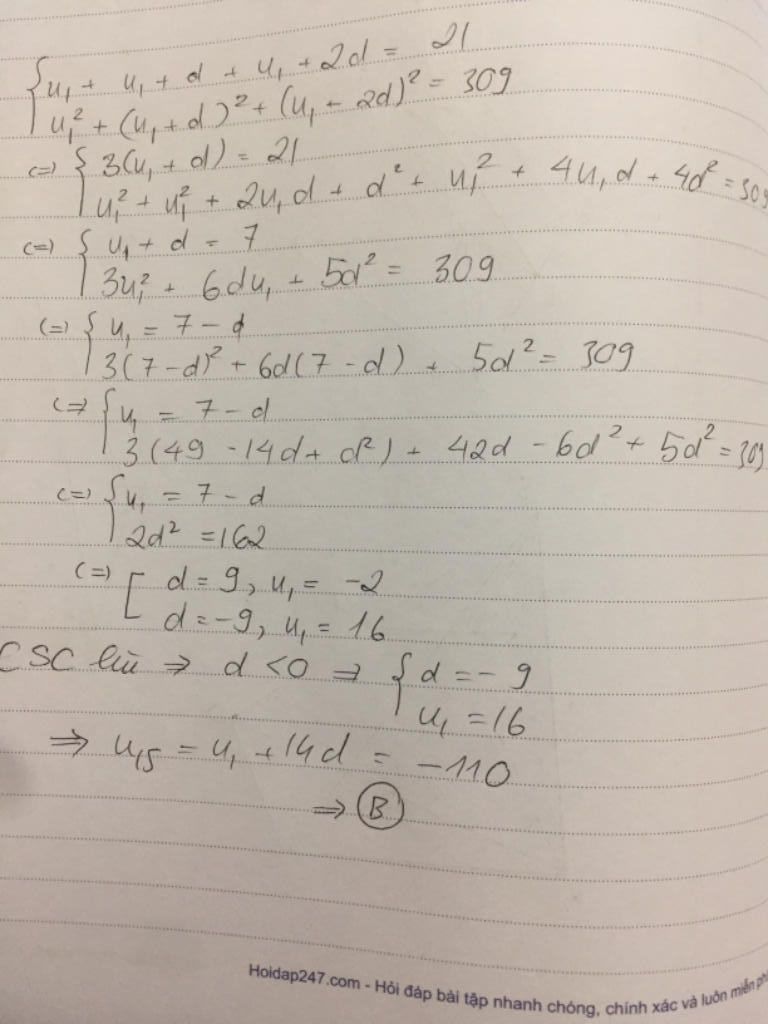 { u₁ + u₁ + d + u₁ + 2d = 21
u₁² + (u₁ + d)² + (u₁ + 2d)² = 309
(=) { 3(u₁ + d) = 21
u₁² + u₁² + 2u₁d + d² + u₁² + 4u₁d + 4d² = 309
(=) { u₁ + d = 7
3u₁² + 6du₁ + 5d² = 309
(=) { u₁ = 7 - d
3(7-d)² + 6d(7-d) + 5d² = 309
(=) { u₁ = 7 - d
3(49 - 14d + d²) + 42d - 6d² + 5d² = 309
(=) { u₁ = 7 - d
2d² = 162
(=) [ d = 9, u₁ = -2
d = -9, u₁ = 16
CSC lùi ⇒ d < 0 ⇒ { d = -9
u₁ = 16
⇒ u₁₅ = u₁ + 14d = -110
⇒ B
Hoidap247.com - Hỏi đáp bài tập nhanh chóng, chính xác và luôn miễn phí